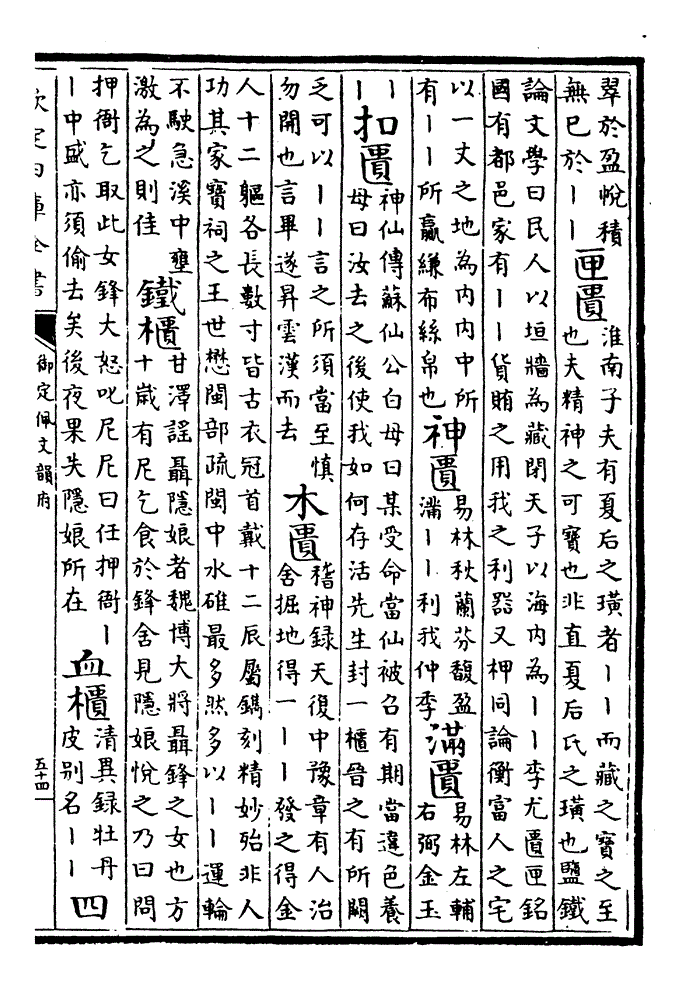 翠於盈悅積
無已於丨丨
匣匱
淮南子夫有夏后之璜者丨丨而藏之寶之至
也夫精神之可寶也非直夏后氏之璜也鹽鐵
論文學曰民人以垣牆為藏閉天子以海内為丨丨李尤匱匣銘
國有都邑家有丨丨貨賄之用我之利器又柙同論衡富人之宅
以一丈之地為内内中所
有丨丨所贏縑布絲帛也
神匱
易林秋蘭芬馥盈
滿丨丨利我仲季
滿匱
易林左輔
右弼金玉
丨
丨
扣匱
神仙傳蘇仙公白母曰某受命當仙被召有期當違色養
母曰汝去之後使我如何存活先生封一櫃晉之有所闕
乏可以丨丨言之所須當至慎
勿開也言畢遂昇雲漢而去
木匱
稽神錄天復中豫章有人治
舍掘地得一丨丨發之得金
人十二軀各長數寸皆古衣冠首戴十二辰屬鐫刻精妙殆非人
功其家寶祠之王世懋閩部疏閩中水碓最多然多以丨丨運輪
不駛急溪中壅
激為之則佳
鐵櫃
甘澤謠聶隱娘者魏博大將聶鋒之女也方
十歲有尼乞食於鋒舍見隱娘悅之乃曰問
押衙乞取此女鋒大怒叱尼尼曰任押衙丨
丨中盛亦須偷去矣後夜果失隱娘所在
血櫃
清異錄牡丹
皮別名丨丨
四
欽定四庫全書
御定佩文韻府
五十四